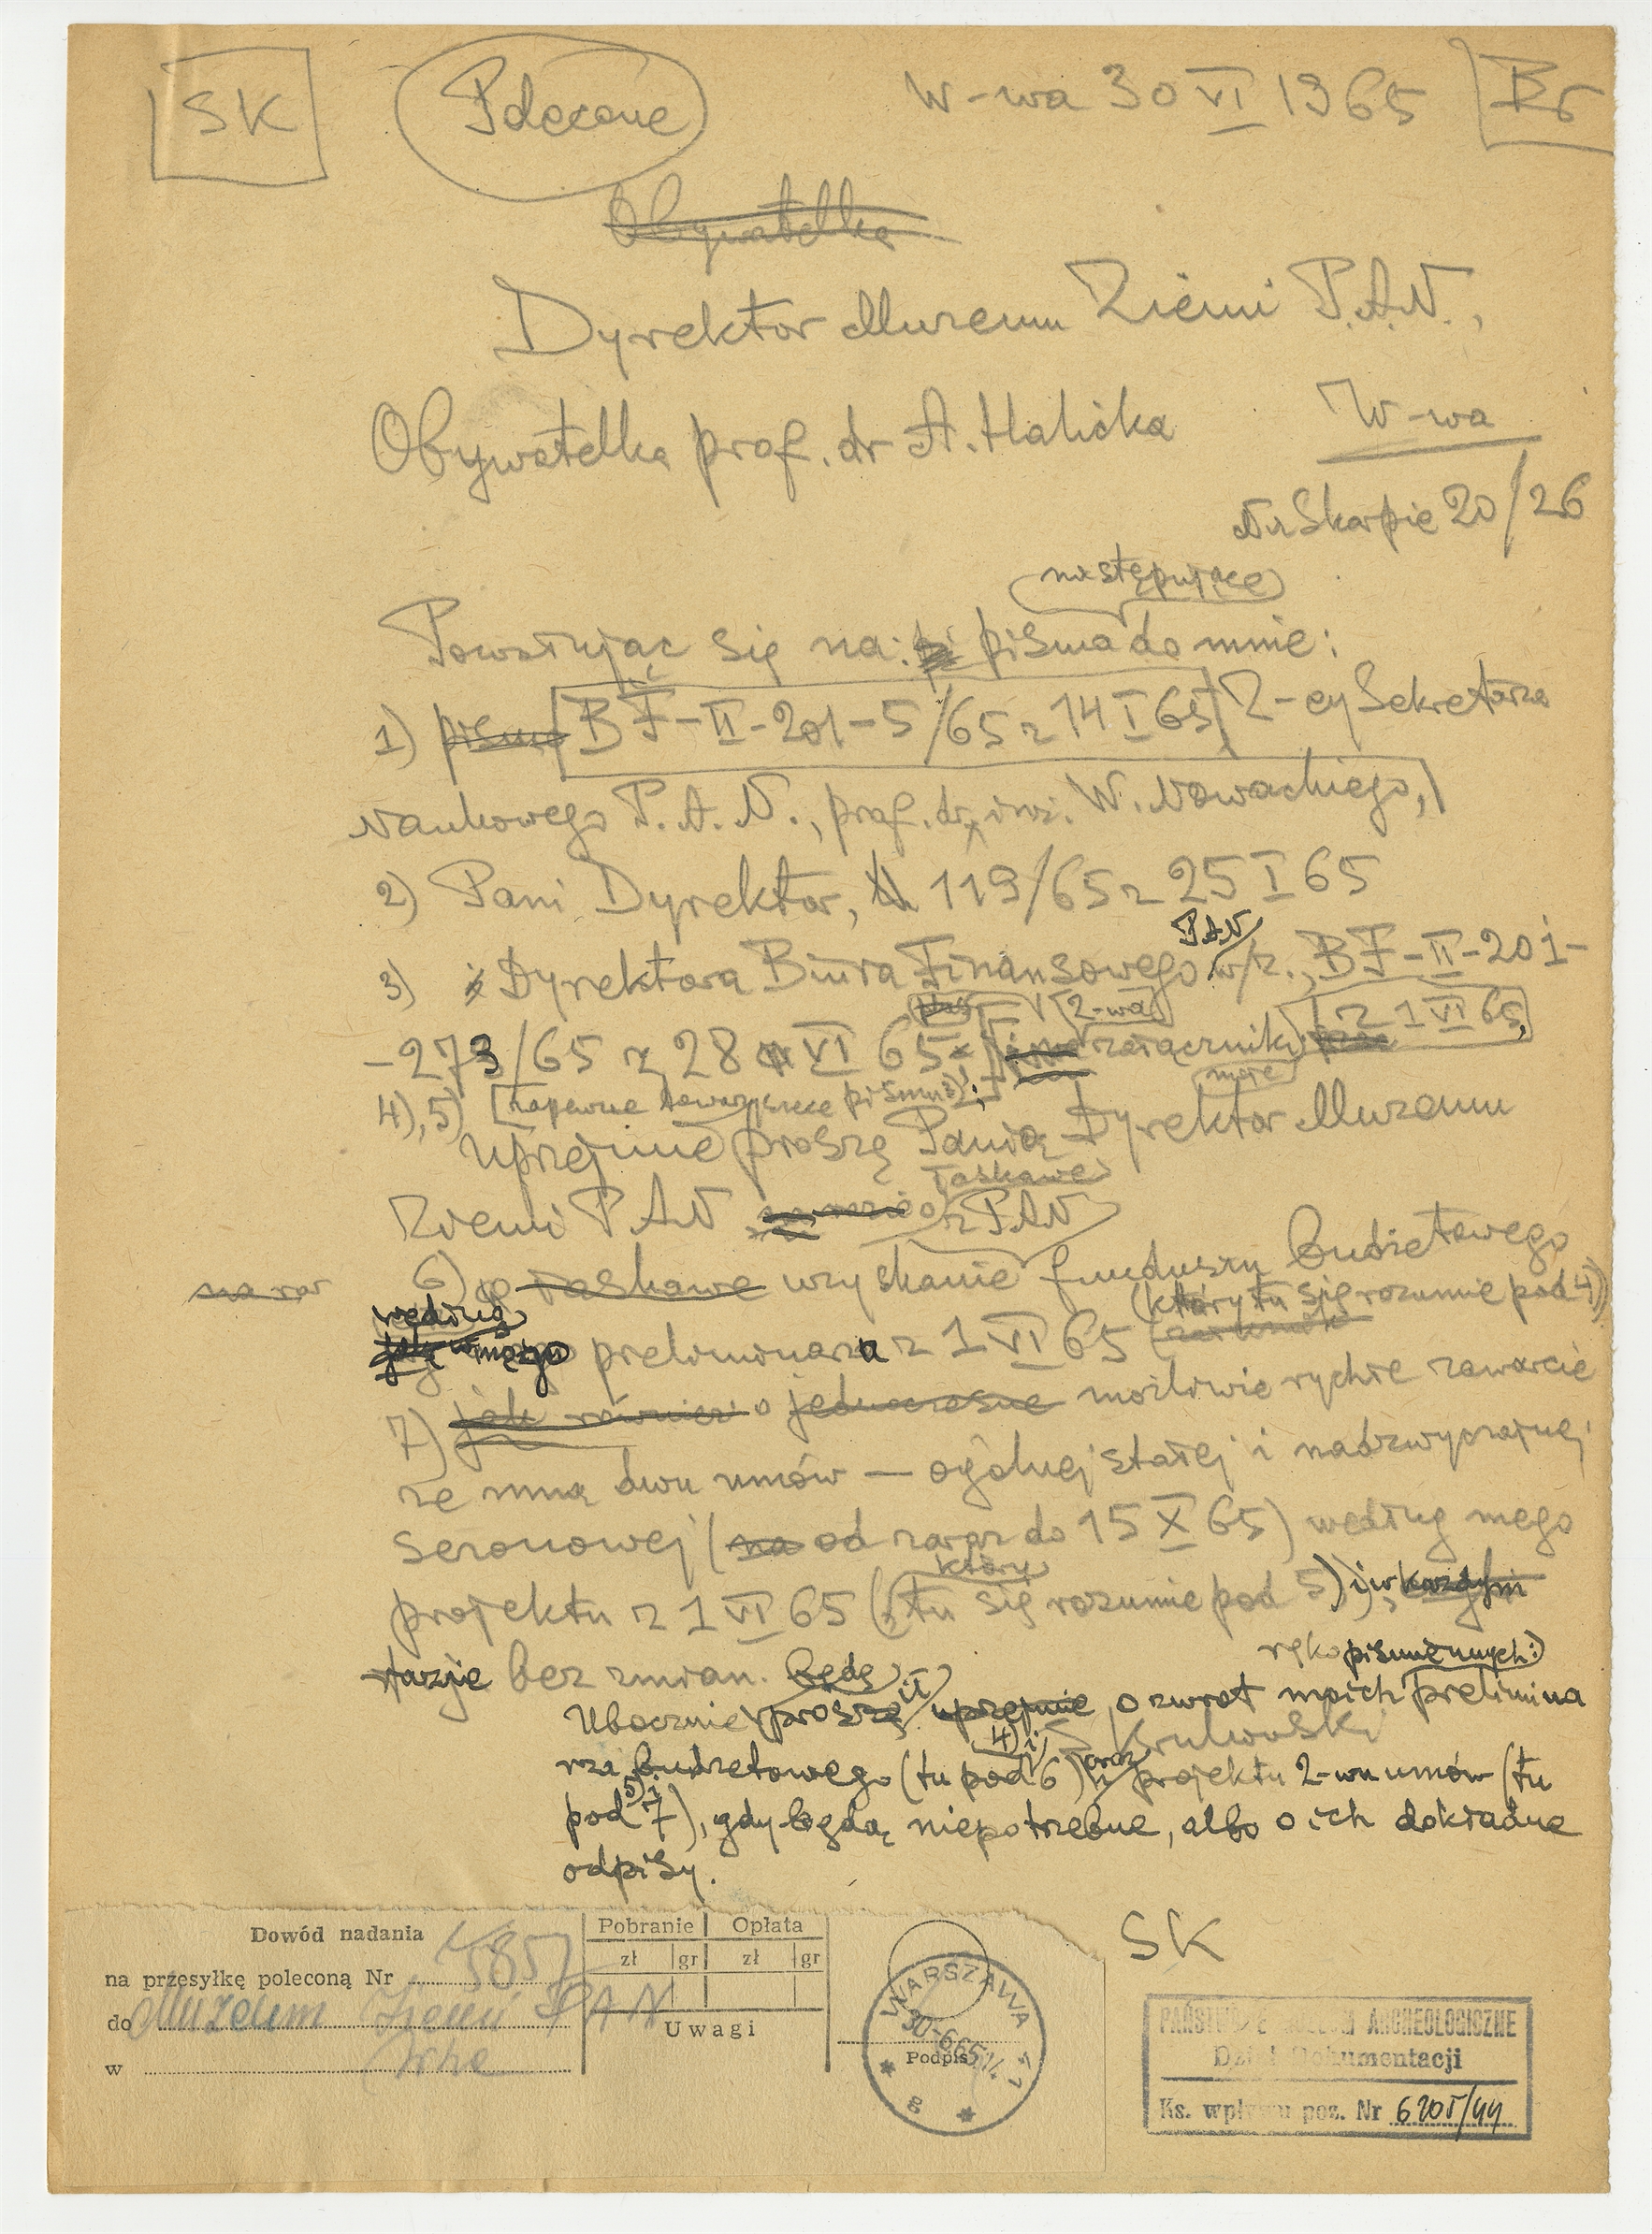 SK
Polecone
W-wa 30 VI 1965
Br
Obywatelka
Dyrektor Muzeum Ziemi P.A.N.,
Obywatelka prof. dr A. Halicka
W-wa
Na Skarpie 20/26
następujące
Powołując się na: pisma do mnie:
1) pismo BF-II-201-5/65 z 14 I 65 Z-cy Sekretarza
Naukowego P.A.N., prof. dr. inż. W. Nowackiego,
2) Pani Dyrektor, 119/65 z 25 I 65
PAN
3) i Dyrektora Biura Finansowego w/z., BF-II-201-
2-wa
z 1 VI 65,
-273/65 z 28 VI 65 załączniki
moje
4), 5) [zapewne towarzyszące pismu 3)];
uprzejmie proszę Panią Dyrektor Muzeum
łaskawe
Ziemi PAN z PAN
na raz
6) o łaskawe uzyskanie funduszu budżetowego
(który tu się rozumie pod 4))
według
mego preliminarza z 1 VI 65
7) jak również o jednoczesne możliwie rychłe zawarcie
ze mną dwu umów — ogólnej stałej i nadzwyczajnej
sezonowej (na od zaraz do 15 X 65) według mego
który
projektu z 1 VI 65 (tu się rozumie pod 5)) i w każdym
razie bez zmian.
Będę
rękopiśmiennych:)
Ubocznie proszę uprzejmie o zwrot moich prelimina
S Krukowski
4) i
oraz
rza budżetowego (tu pod 6) projektu 2-wu umów (tu
5) i
pod 7), gdy będą niepotrzebne, albo o ich dokładne
odpisy.
SK
Dowód nadania
na przesyłkę poleconą Nr 5857
do Muzeum Ziemi PAN
w
Pobranie Opłata
zł gr zł gr
Uwagi
Podpis
WARSZAWA
30-6 65
g
PAŃSTWOWE MUZEUM ARCHEOLOGICZNE
Dział Dokumentacji
Ks. wpływu poz. Nr 6205/44